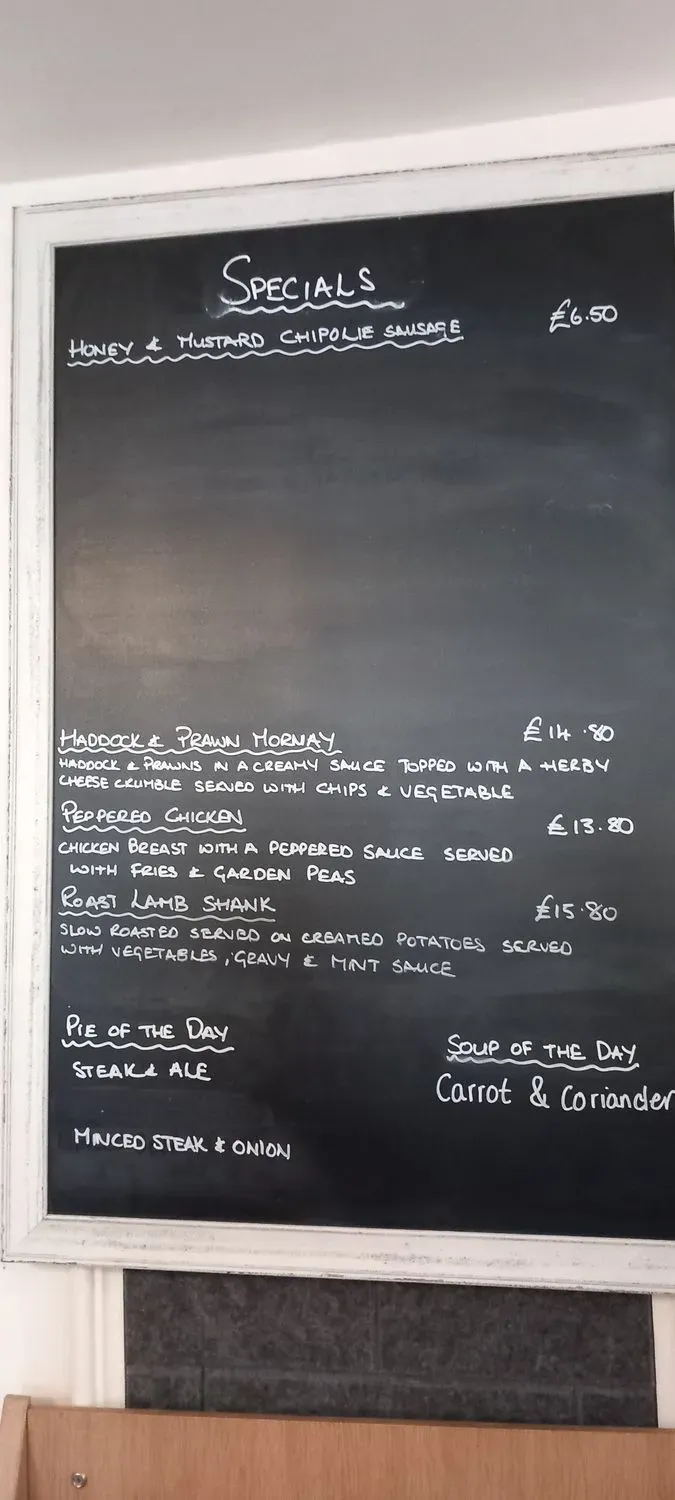 SPECIALS
HONEY & MUSTARD CHIPOLIE SAUSAGE £6.50
HADDOCK & PRAWN MORNAY £14.80
HADDOCK & PRAWNS IN A CREAMY SAUCE TOPPED WITH A HERBY
CHEESE CRUMBLE SERVED WITH CHIPS & VEGETABLE
PEPPERED CHICKEN £13.80
CHICKEN BREAST WITH A PEPPERED SAUCE SERVED
WITH FRIES & GARDEN PEAS
ROAST LAMB SHANK £15.80
SLOW ROASTED SERVED ON CREAMED POTATOES SERVED
WITH VEGETABLES, GRAVY & MINT SAUCE
PIE OF THE DAY
STEAK & ALE
MINCED STEAK & ONION
SOUP OF THE DAY
Carrot & Coriander